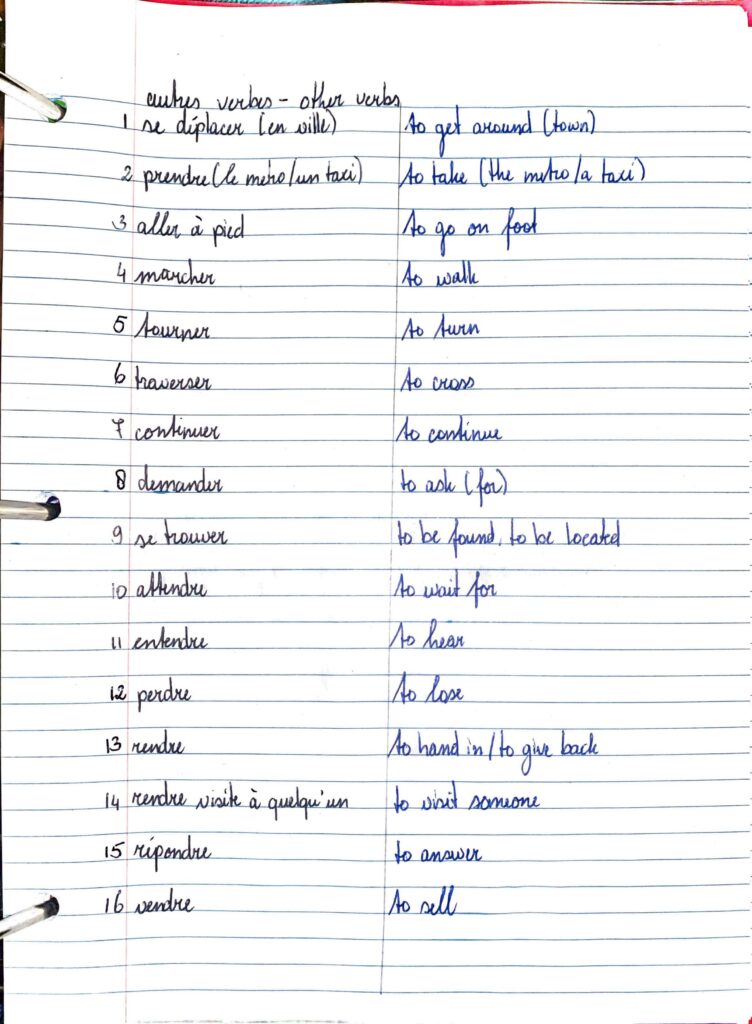 autres verbes - other verbs
1 se déplacer (en ville) to get around (town)
2 prendre (le métro/un taxi) to take (the metro/a taxi)
3 aller à pied to go on foot
4 marcher to walk
5 tourner to turn
6 traverser to cross
7 continuer to continue
8 demander to ask (for)
9 se trouver to be found, to be located
10 attendre to wait for
11 entendre to hear
12 perdre to lose
13 rendre to hand in/to give back
14 rendre visite à quelqu'un to visit someone
15 répondre to answer
16 vendre to sell